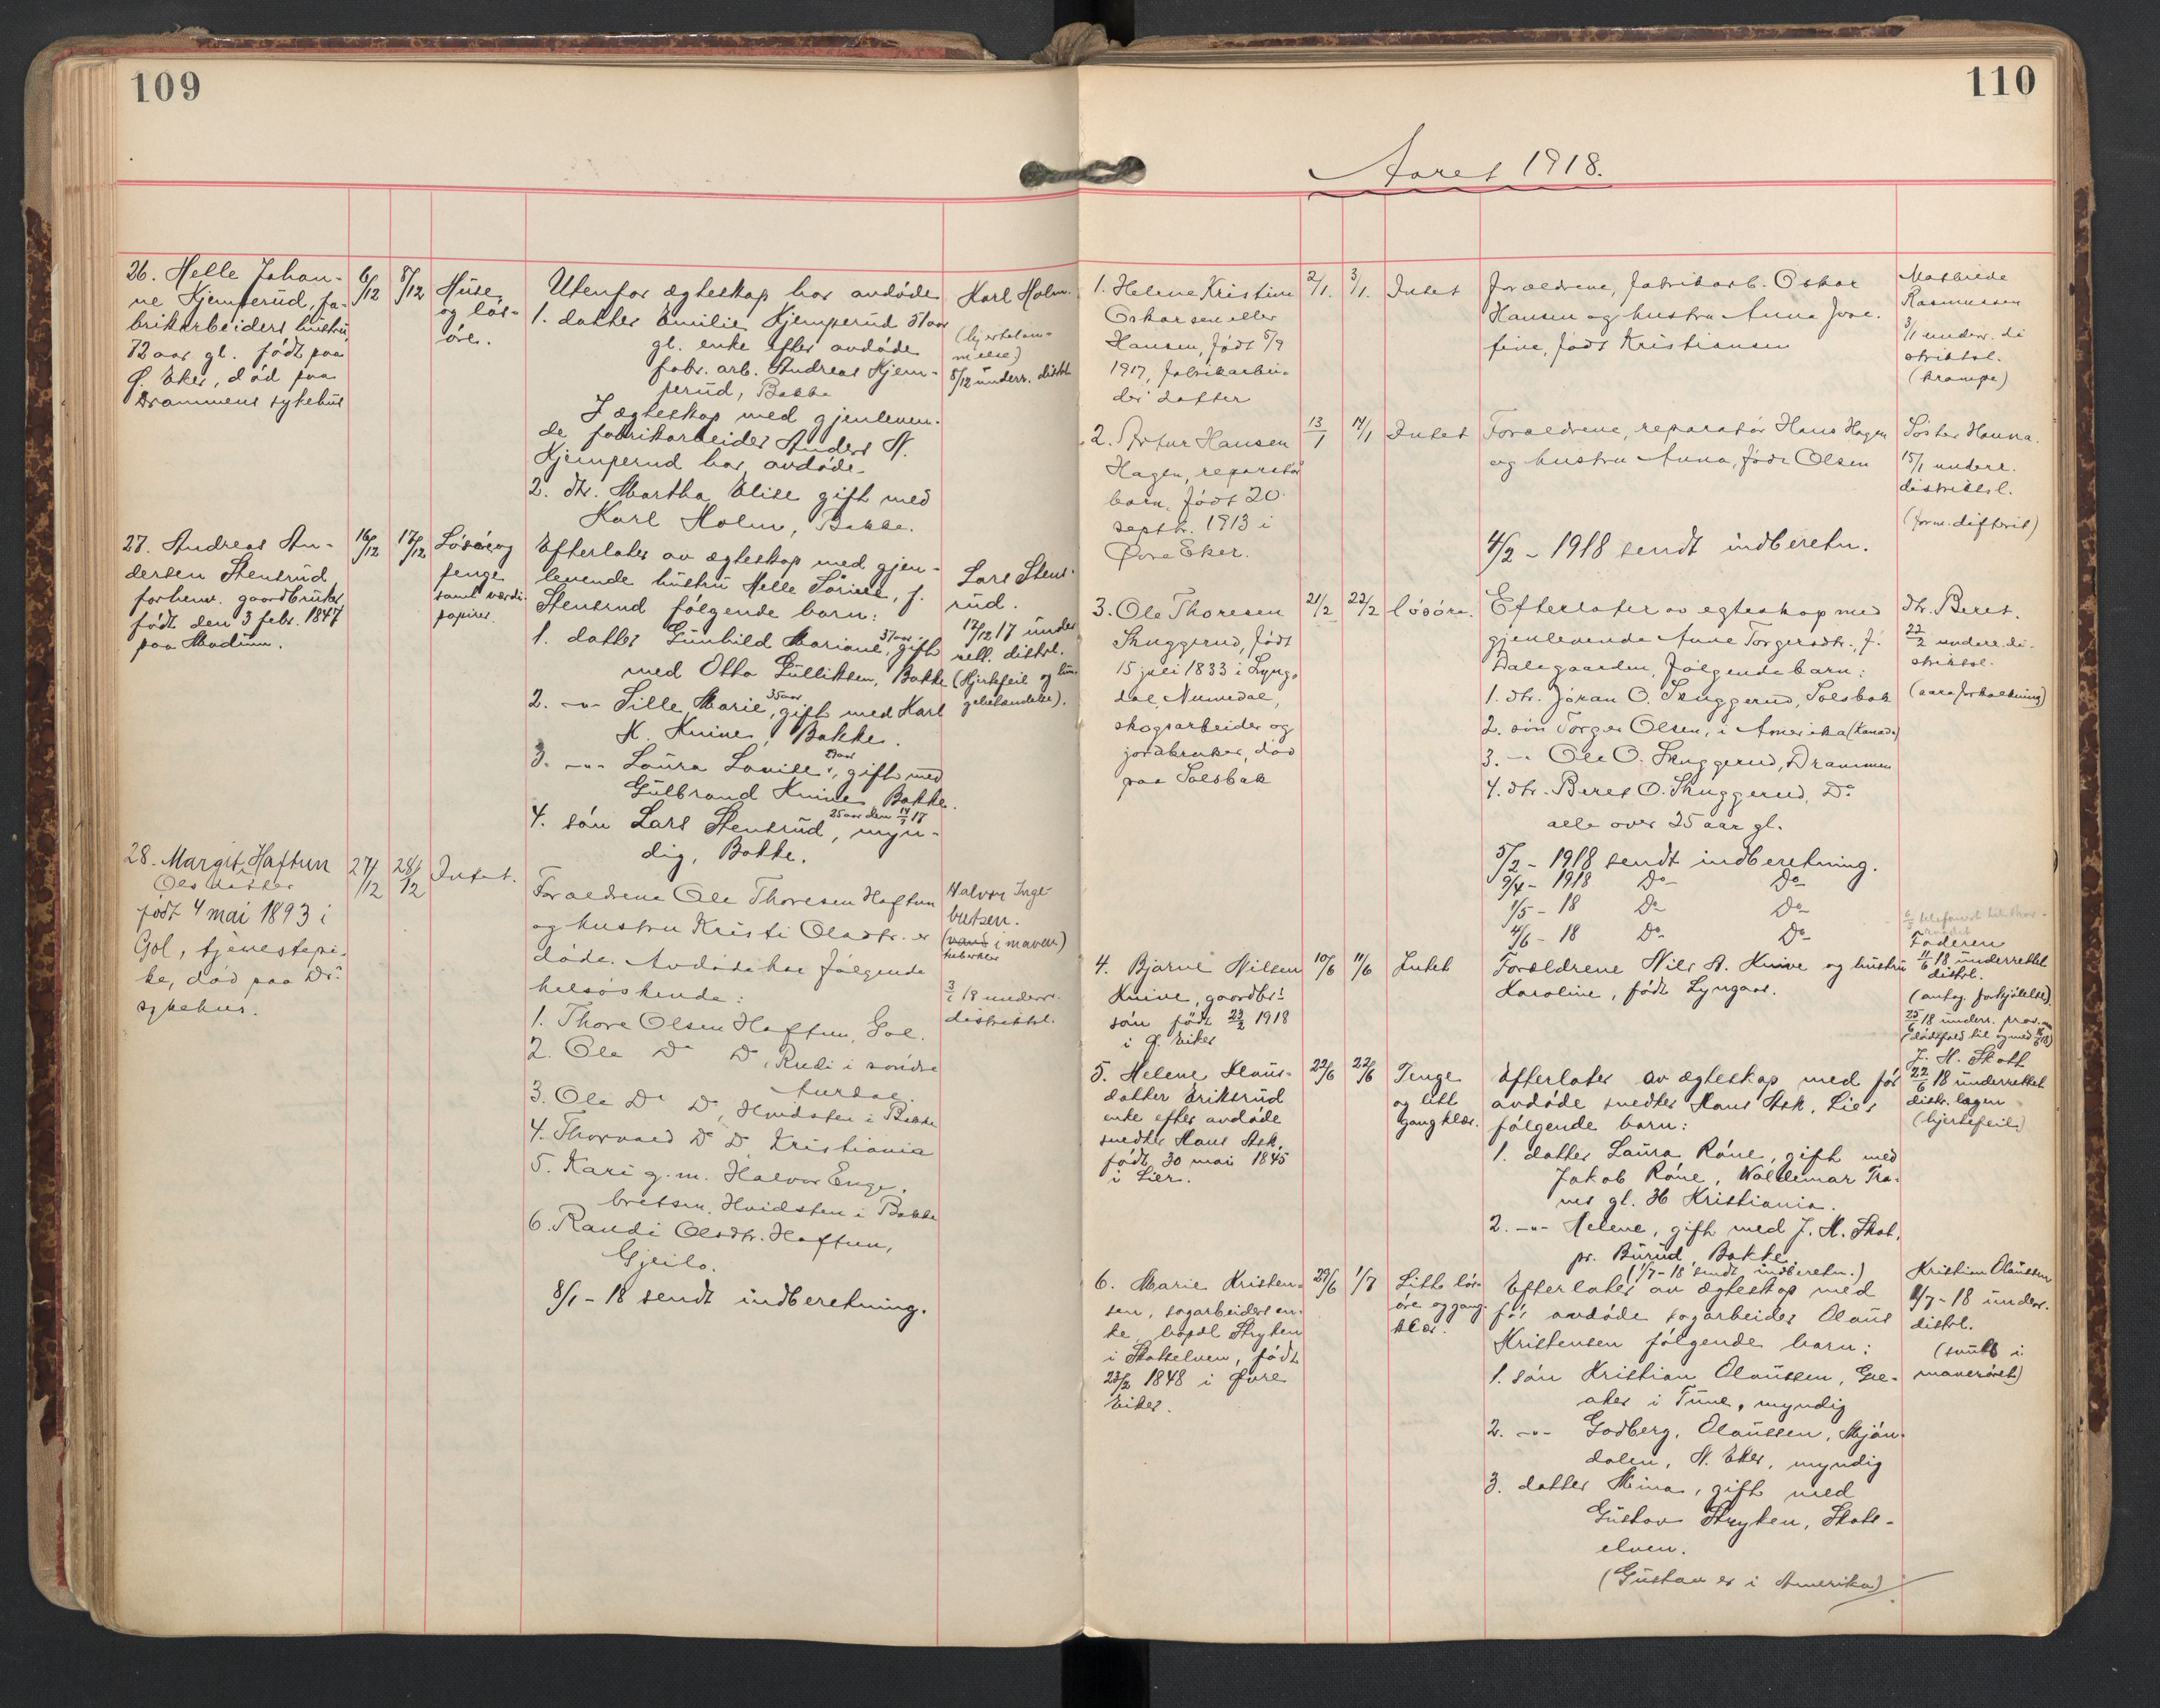 109
26. Helle Johan-
ne Kjemperud, fa-
brikarbeiders hustru,
72 aar gl. født paa
Ø. Eker, død paa
Drammens sykehus
6/12
8/12
Huse,
og løs-
øre.
Utenfor ægteskap har avdøde
1. datter Emilie Kjemperud 51 aar
gl. enke efter avdøde
fabr. arb. Andreas Kjem-
perud, Bakke
I ægteskap med gjenleven-
de fabrikarbeider Anders N.
Kjemperud har avdøde
2. dtr. Martha Elise gift med
Karl Holm, Bakke.
Karl Holm.
(hjertelam-
melse)
8/12 underr. distl.
27. Andreas An-
dersen Stensrud
forhenv. gaardbruker
født den 3 febr. 1847
paa Modum.
16/12
17/12
Løsøre og
penge
samt værdi-
papirer.
Efterlater av ægteskap med gjen-
levende hustru Helle Sørine, f.
Stensrud følgende barn:
1. datter Gunhild Mariane, 37 aar, gift
med Otto Gulliksen, Bakke
2. -"- Sille Marie, 35 aar, gift med Karl
K. Knive, Bakke.
3. -"- Laura Lovise, 29 aar, gift med
Gulbrand Knive Bakke.
4. søn Lars Stensrud, 25 aar den 14/7 17 myn-
dig, Bakke.
Lars Stens-
rud.
17/12 17 under
rett. distrl.
(Hjertefeil og lun-
gebetændelse).
28. Margit Haftun
Olsdatter
født 4 mai 1893 i
Gol, tjenestepi-
ke, død paa Drs
sykehus.
27/12
28/12
Intet.
Forældrene Ole Thoresen Haftun
og hustru Kristi Olsdtr. er
døde. Avdøde har følgende
helsøskende:
1. Thore Olsen Haftun, Gol.
2. Ole Do Do, Rudi i søndre
Aurdal.
3. Ole Do Do, Hvidsten i Bakke
4. Thorvald Do Do Kristiania
5. Kari g. m. Halvor Enge-
bretsen, Hvidsten i Bakke
6. Randi Olsdtr. Haftun,
Gjeilo.
8/1 - 18 sendt indberetning.
Halvor Inge-
bretsen.
(vand i maven)
tuberkler
3/1 18 underr.
distriktsl.
110
Aaret 1918.
1. Helene Kristine
Oskarsen eller
Hansen, født 5/9
1917, fabrikarbei-
der datter
2/1.
3/1.
Intet
Forældrene, fabrikarb. Oskar
Hansen og hustru Anna Jose-
fine, født Kristiansen
Mathilde
Rasmussen
3/1 underr. di
striktsl.
(krampe)
2. Artur Hansen
Hagen, reparatør
barn, født 20
septb. 1913 i
Øvre Eker.
13/1
14/1
Intet
Forældrene, reparatør Hans Hagen
og hustru Anna, født Olsen
4/2 - 1918 sendt indberetn.
Søster Hanna.
15/1 underr.
distriktsl.
(form. difterit)
3. Ole Thoresen
Skuggerud, født
15 juli 1833 i Lyng-
dal, Numedal,
skogsarbeider og
jordbruker, død
paa Solsbak
21/2
22/2
løsøre.
Efterlater av egteskap med
gjenlevende Anne Torgersdtr., f.
Dalegaarden, følgende barn:
1. dtr. Jøran O. Skuggerud, Solsbak
2. søn Torger Olsen, i Amerika (Kanada)
3. -"- Ole O. Skuggerud, Drammen
4. dtr. Beret O. Skuggerud, Do
alle over 25 aar gl.
5/2 - 1918 sendt indberetning.
9/4 - 1918 Do Do
1/5 - 18 Do Do
4/6 - 18 Do Do
Dtr. Beret.
22/2 underr. di-
striktsl.
(aareforkalkning)
4. Bjarne Nilsen
Knive, gaardbr.
søn født 23/2 1918
i Ø. Eiker
10/6
11/6
Intet
Forældrene Nils A. Knive og hustru
Karoline, født Lyngaas.
Faderen
11/6 18 underrettet
distrl.
(antag. forkjølelse)
25/6 18 underr.
5. Helene Klaus-
datter Eriksrud
enke efter avdøde
snedker Hans Ask,
født 30 mai 1845
i Lier.
22/6
22/6
Penge
og litt
gangklær.
Efterlater av ægteskap med før
avdøde snedker Hans Ask, Lier
følgende barn:
1. datter Laura Røne, gift med
Jakob Røne, Waldemar Tra-
nes gt. 36 Kristiania.
2. -"- Helene, gift med J. H. Skot,
pr. Burud, Bakke.
(1/7 - 18 sendt indberetn.)
J. H. Skott
22/6 18 underrettet
distr. lægen
(hjertefeil)
6. Marie Kristen-
sen, sagarbeiders en-
ke, bopæl Stryken
i Skotselven, født
23/2 1848 i Øvre
Eiker.
29/6
1/7
Litt løs-
øre og gang-
klær.
Efterlater av ægteskap med
før avdøde sagarbeider Olaus
Kristensen følgende barn:
1. søn Kristian Olaussen, Gre-
aker i Tune, myndig
2. -"- Godberg. Olaussen, Mjøn-
dalen, N. Eker, myndig
3. datter Mina, gift med
Gustav Stryken, Skots-
elven.
(Gustav er i Amerika)
Kristian Olaussen
2/7 - 18 underr.
distrl.
(svulst i
mavesæk)